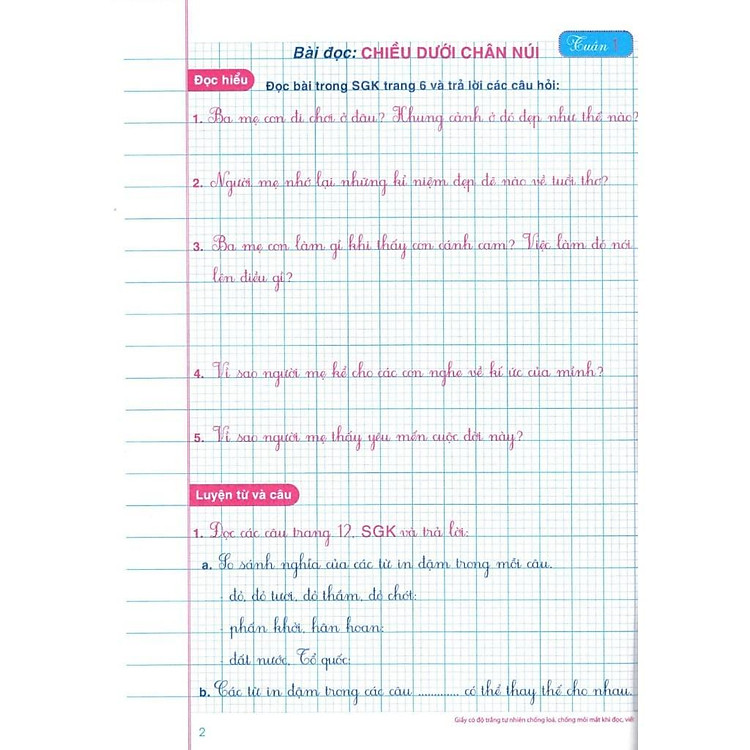 Tuần 1
Bài đọc: CHIỀU DƯỚI CHÂN NÚI
Đọc hiểu
Đọc bài trong SGK trang 6 và trả lời các câu hỏi:
1. Ba mẹ con đi chơi ở đâu? Khung cảnh ở đó đẹp như thế nào?
2. Người mẹ nhớ lại những kỉ niệm đẹp đẽ nào về tuổi thơ?
3. Ba mẹ con làm gì khi thấy con cánh cam? Việc làm đó nói
lên điều gì?
4. Vì sao người mẹ kể cho các con nghe về kí ức của mình?
5. Vì sao người mẹ thấy yêu mến cuộc đời này?
Luyện từ và câu
1. Đọc các câu trang 12, SGK và trả lời:
a. So sánh nghĩa của các từ in đậm trong mỗi câu.
- đỏ, đỏ tươi, đỏ thắm, đỏ chót;
- phấn khởi, hân hoan;
- đất nước, Tổ quốc;
b. Các từ in đậm trong các câu ............. có thể thay thế cho nhau.
Giấy có độ trắng tự nhiên chống loá, chống mỏi mắt khi đọc, viết
2